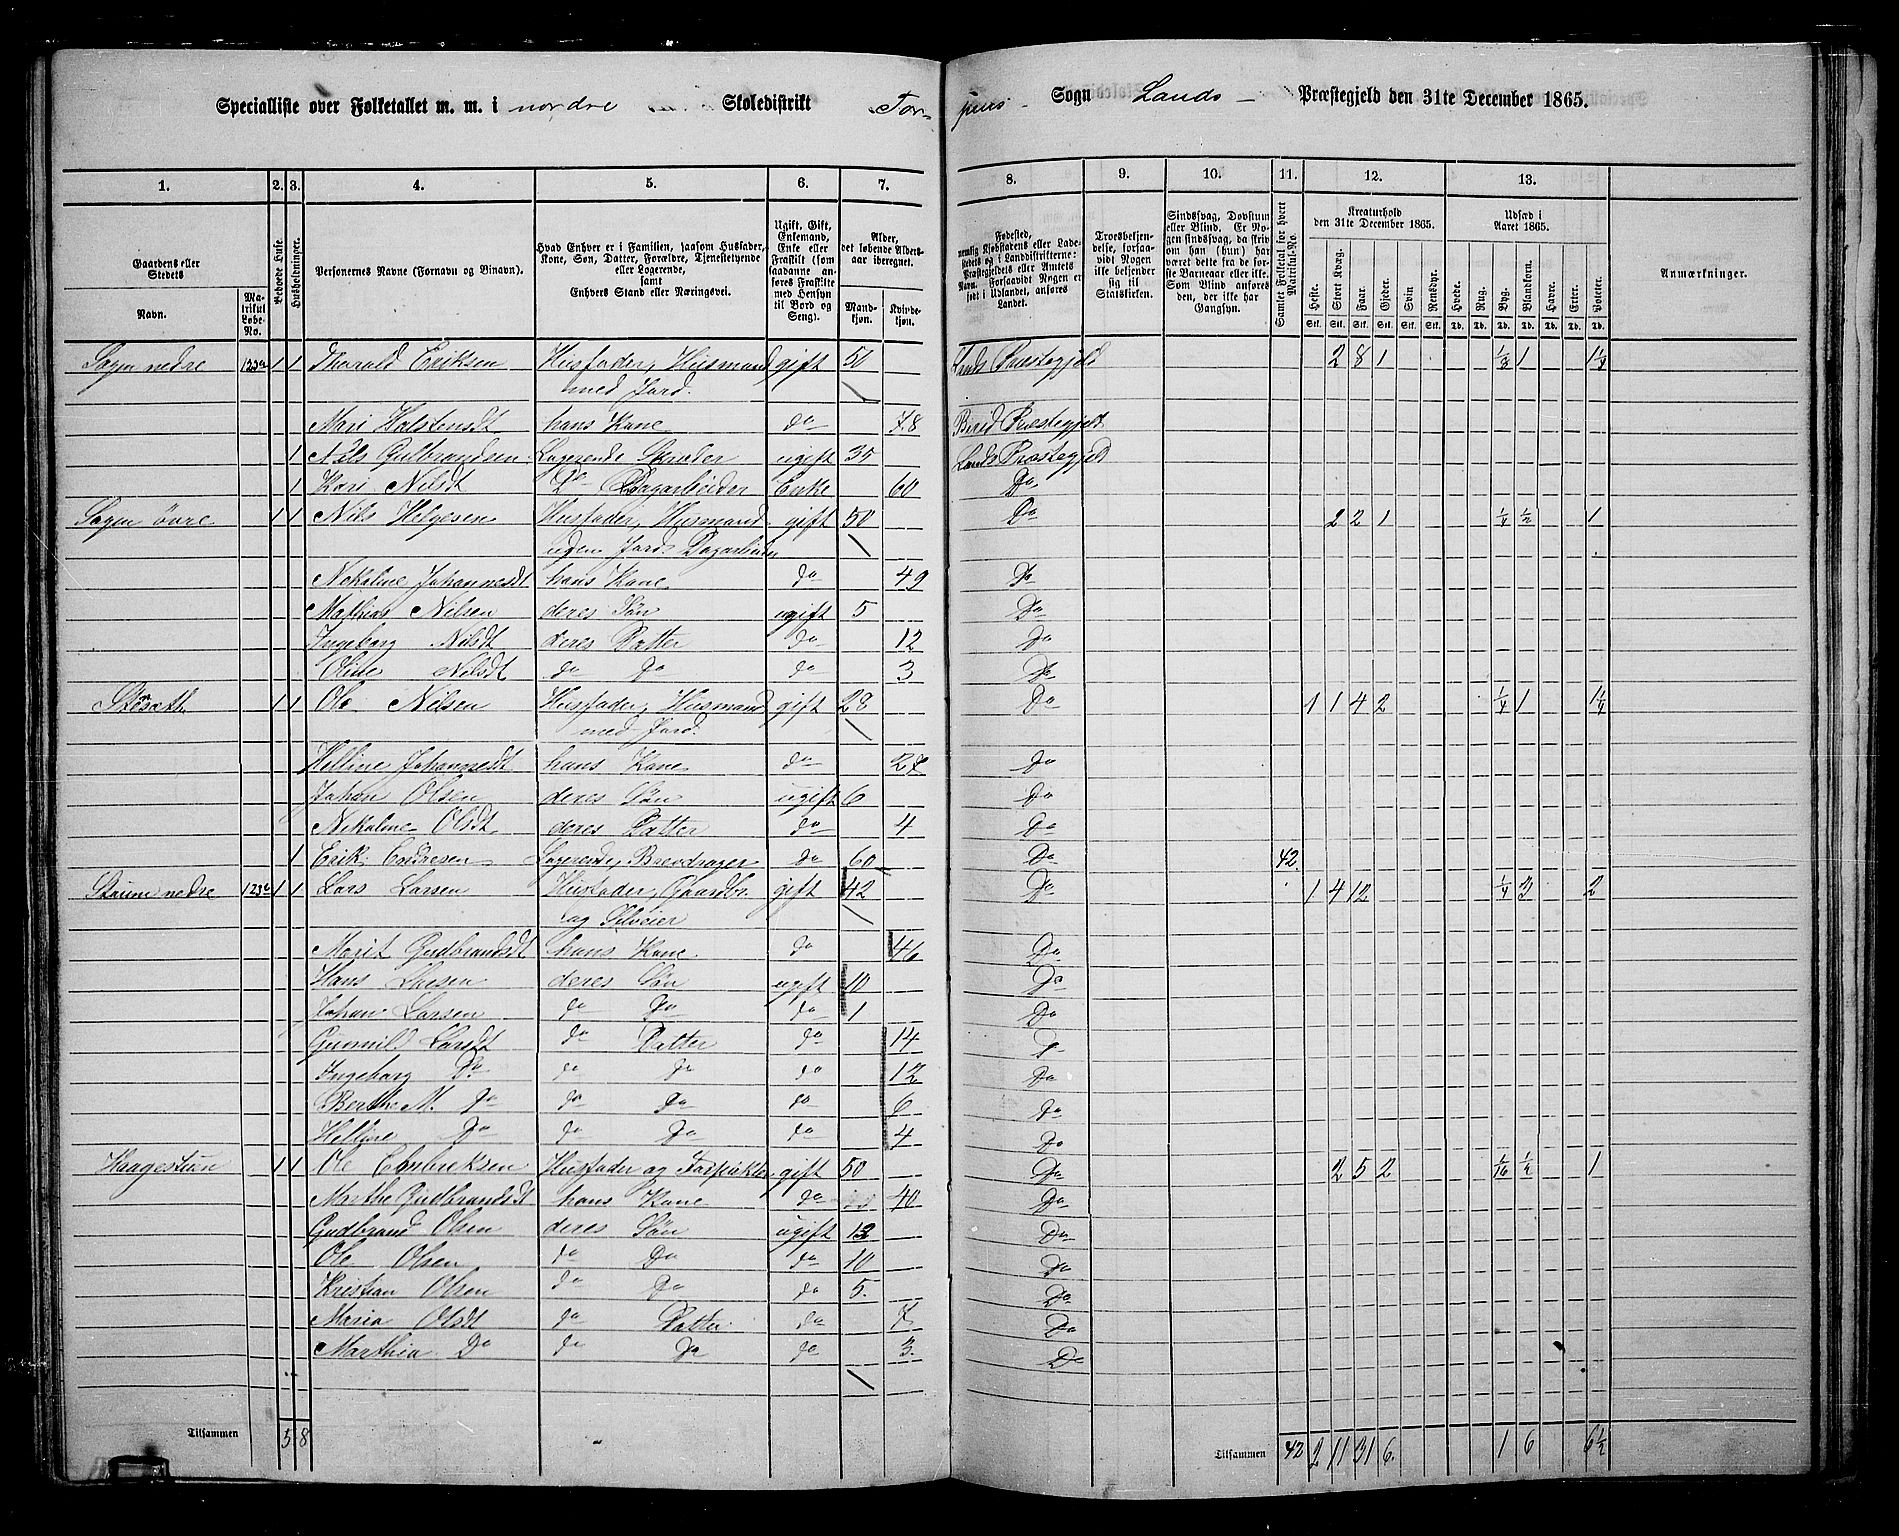 Specialliste over Folketallet m. m. i nordre Skoledistrikt Tor-
pens Sogn Lands Præstegjeld den 31te December 1865.
1. 2. 3. 4. 5. 6. 7. 8. 9. 10. 11. 12. 13.
Gaardens eller Stedets
Navn.
Matrikul Løbe-No.
Beboede Huse.
Husholdninger.
Personernes Navne (Fornavn og Binavn).
Hvad Enhver er i Familien, saasom Husfader, Kone, Søn, Datter, Forældre, Tjenestetyende eller Logerende, samt Enhvers Stand eller Næringsvei.
Ugift, Gift, Enkemand, Enke eller Fraskilt (som saadanne anføres Fraskilte med Hensyn til Bord og Seng).
Alder, det løbende Aldersaar iberegnet.
Mandkjøn.
Kvindekjøn.
Troesbekjendelse, forsaavidt Nogen ikke bekjender sig til Statskirken.
Sindssvag, Døvstum eller Blind. Er Nogen sindssvag, da skrives om han (hun) har været dette fra de første Barneaar eller ikke. Som Blind anføres den, der ikke har Gangsyn.
Samlet Folketal for hvert Matrikul-No.
Kreaturhold den 31te December 1865.
Heste. Stort Kvæg. Faar. Gjeder. Svin. Rensdyr.
Udsæd i Aaret 1865.
Hvede. Rug. Byg. Blandkorn. Havre. Erter. Poteter.
Anmærkninger.
Sogn nedre 123a 1 1 Thorvald Eriksen Husfader, Husmand gift 50 Lands Præstegjeld 2 8 1 1/8 1 1 1/4
med Jord.
Mari Halstensdt hans Kone do 48 Birid Præstegjeld
1 Nils Gulbrandsen Logerende Skræder ugift 35 Lands Præstegjeld
1 Kari Nilsdt Do Dagarbeider Enke 60 Do
Sogn övre 1 1 Nils Helgesen Husfader, Husmand gift 50 Do 2 2 1 1/4 1/2 1
uden Jord Dagarbeider
Nikoline Johannesdt hans Kone do 49 Do
Mathias Nilsen deres Søn ugift 5 Do
Ingeborg Nilsdt deres Datter do 12 Do
Oline Nilsdt do Do do 3 Do
1 1 Ole Nilsen Husfader, Husmand gift 28 Do 1 1 4 2 1/4 1 1 1/4
med Jord.
Helline Johannesdt hans Kone do 27 Do
Johan Olsen deres Søn ugift 6 Do
Nikoline Olsdt deres Datter do 4 Do
1 Erik Endresen Logerende, Brevdrager do 60 Do 42
Staum nedre 123b 1 1 Lars Larsen Husfader, Gaardbr. gift 42 Do 1 4 12 1/4 3 2
og Selveier
Marit Gudbrandsdt hans Kone do 46 Do
Hans Larsen deres Søn ugift 10 Do
Johan Larsen do Do do 1 Do
Gunnild Larsdt do Datter do 14 Do
Ingeborg Do do Do do 12 Do
Berthe M. Do do Do do 6 Do
Helline Do do Do do 4 Do
Haagestuen 1 1 Ole Embriksen Husfader og Forpakter gift 50 Do 2 5 2 1/16 1/2 1
Marthe Gudbrandsdt hans Kone do 40 Do
Gudbrand Olsen deres Søn ugift 13 Do
Ole Olsen do Do do 10 Do
Kristian Olsen do Do do 5 Do
Maria Olsdt do Datter do 7 Do
Marthia Do do Do do 3 Do
Tilsammen 5 8 Tilsammen 42 2 11 31 6 1 6 6 1/2